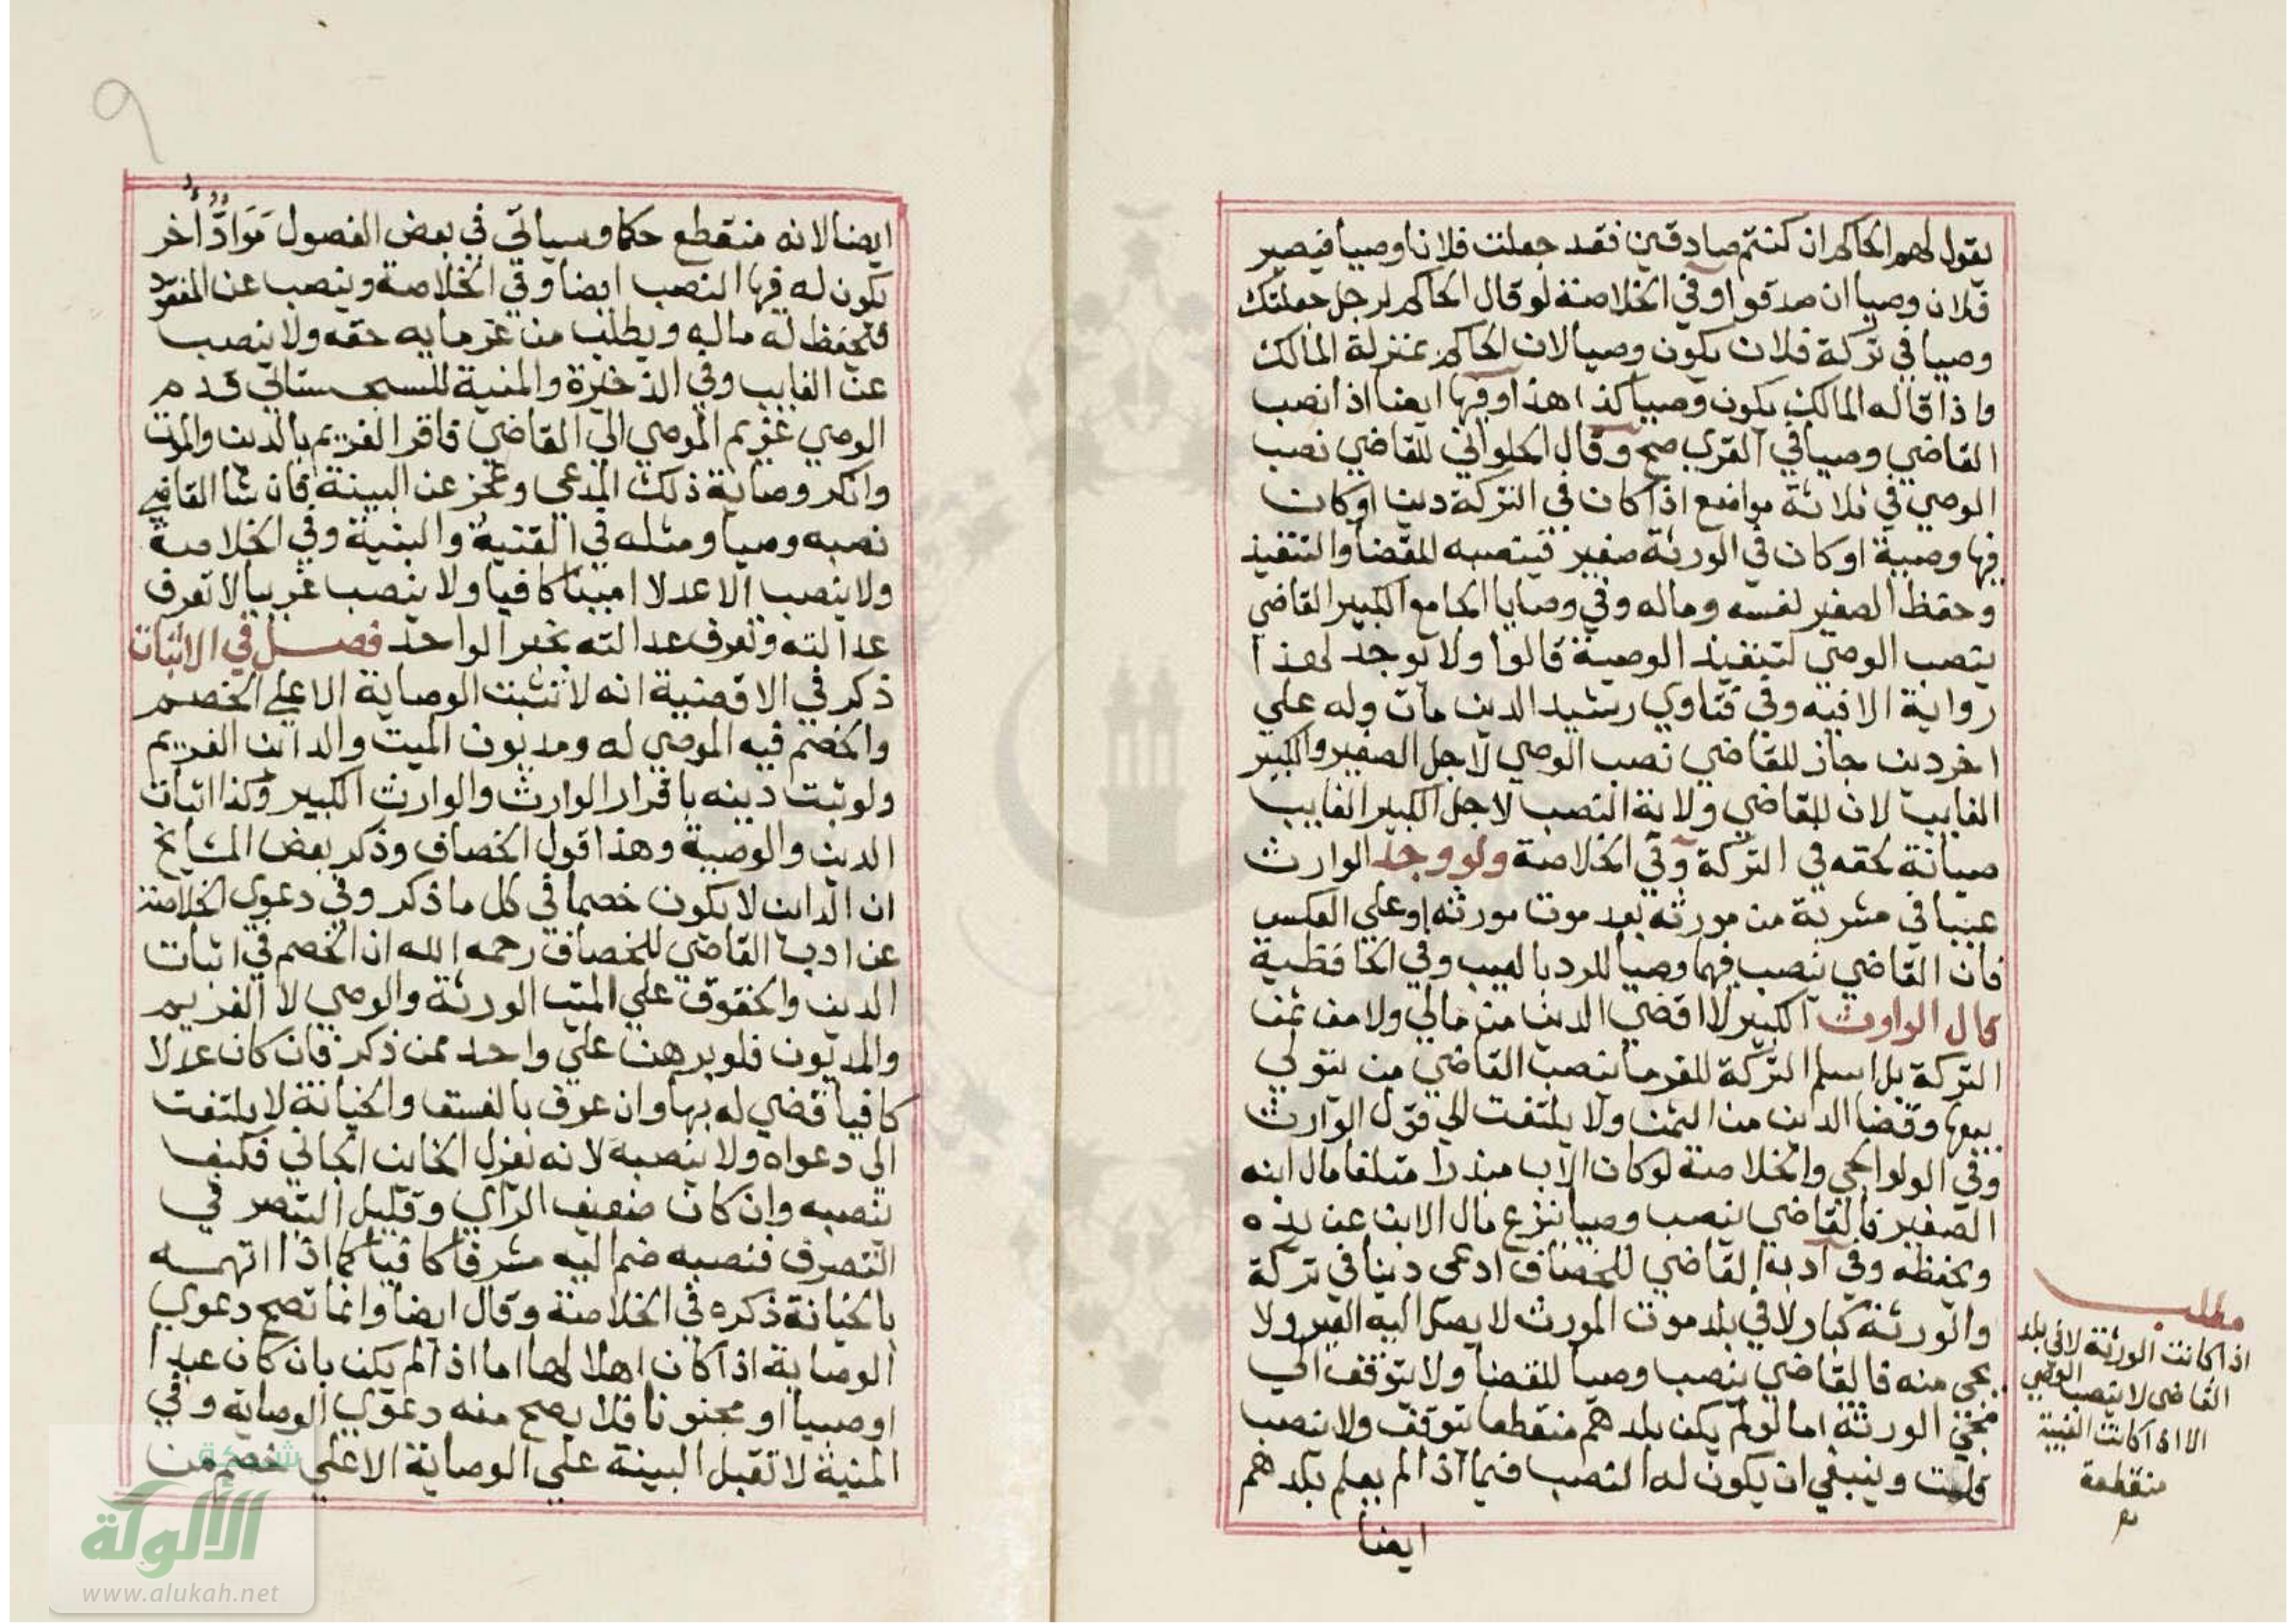 يقول لهم الحاكم ان كنتم صادقين فقد جعلت فلانا وصيا فيصير
فلان وصيا ان صدقوا وفي الخلاصة لو قال الحاكم لرجل جعلتك
وصيا في تركة فلان يكون وصيا لان الحاكم بمنزلة المالك
واذا قاله المالك يكون وصيا كذا هذا وفيها ايضا اذا نصب
القاضي وصيا في القرى صح وقال الحلواني للقاضي نصب
الوصي في ثلاثة مواضع اذا كان في التركة دين او كان
فيها وصية او كان في الورثة صغير فينصبه للقضا والتنفيذ
وحفظ الصغير لنفسه وماله وفي وصايا الجامع الكبير القاضي
ينصب الوصي لتنفيذ الوصية قالوا ولا توجد لهذا
رواية الا فيه وفي فتاوي رشيد الدين مات وله علي
اخر دين جاز للقاضي نصب الوصي لاجل الصغير والكبير
الغايب لان للقاضي ولاية النصب لاجل الكبير الغايب
صيانة لحقه في التركة وفي الخلاصة ولو وجد الوارث
عيبا في مشرية من مورثه بعد موت مورثه او علي العكس
فان القاضي ينصب فيهما وصيا للرد بالعيب وفي الحافظية
قال الوارث الكبير لا اقضي الدين من مالي ولا من ثمن
التركة بل اسلم التركة للغرما ينصب القاضي من يتولي
بيعها وقضا الدين من الثمن ولا يلتفت الي قول الوارث
وفي الولوالجي والخلاصة لو كان الاب مبذرا متلفا مال ابنه
الصغير فالقاضي ينصب وصيا ينزع مال الابن عن يده
ويحفظه وفي ادب القاضي للخصاف ادعى دينا في تركة
والورثة كبار لا في بلد موت المورث لا يصل اليه العير ولا
يجي منه فالقاضي ينصب وصيا للقضا ولا يتوقف الي
مجي الورثة اما لو لم يكن بلدهم منقطعا يتوقف ولا ينصب
قلت وينبغي ان يكون له النصب فيما اذا لم يعلم بلدهم
ايضا
مطلب
اذا كانت الورثة لا في بلد
القاضي لا ينصب الوصي
الا اذا كانت الغيبة
منقطعة
٩
ايضا لانه منقطع حكما وسياتي في بعض الفصول مَوَادٌّ اُخر
يكون له فيها النصب ايضا وفي الخلاصة وينصب عن المفقود
فيحفظ له ماله ويطلب من غرمايه حقه ولا ينصب
عن الغايب وفي الذخيرة والمنية للسجستاني قدم
الوصي غريم الموصي الي القاضي فاقر الغريم بالدين والموت
وانكر وصاية ذلك المدعي وعجز عن البينة فان شا القاضي
نصبه وصيا ومثله في القنية والبنية وفي الخلاصة
ولا ينصب الا عدلا امينا كافيا ولا ينصب غريبا لا تعرف
عدالته وتعرف عدالته بخبر الواحد فصل في الاثبات
ذكر في الاقضية انه لا تثبت الوصاية الا علي الخصم
والخصم فيه الموصي له ومديون الميت والداين الغريم
ولو ثبت دينه باقرار الوارث والوارث الكبير وكذا اثبات
الدين والوصية وهذا قول الخصاف وذكر بعض المشايخ
ان الداين لا يكون خصما في كل ما ذكر وفي دعوي الخلاصة
عن ادب القاضي للخصاف رحمه الله ان الخصم في اثبات
الدين والحقوق علي الميت الورثة والوصي لا الغريم
والمديون فلو برهن علي واحد ممن ذكر فان كان عدلا
كافيا قضي له بها وان عرف بالفسق والخيانة لا يلتفت
الي دعواه ولا ينصبه لانه نعزل الخاين الجاني فكيف
ينصبه وان كان ضعيف الراي وقليل التبصر في
التصرف فنصبه ضم اليه مشرفا كافيا كما اذا اتهمه
بالخيانة ذكره في الخلاصة وقال ايضا وانما تصح دعوي
الوصاية اذا كان اهلا لها اما اذا لم يكن بان كان عبدا
او صبيا او مجنونا فلا يصح منه دعوي الوصاية وفي
المنية لا تقبل البينة علي الوصاية الا علي خصم من
شبكة
الألوكة
www.alukah.net